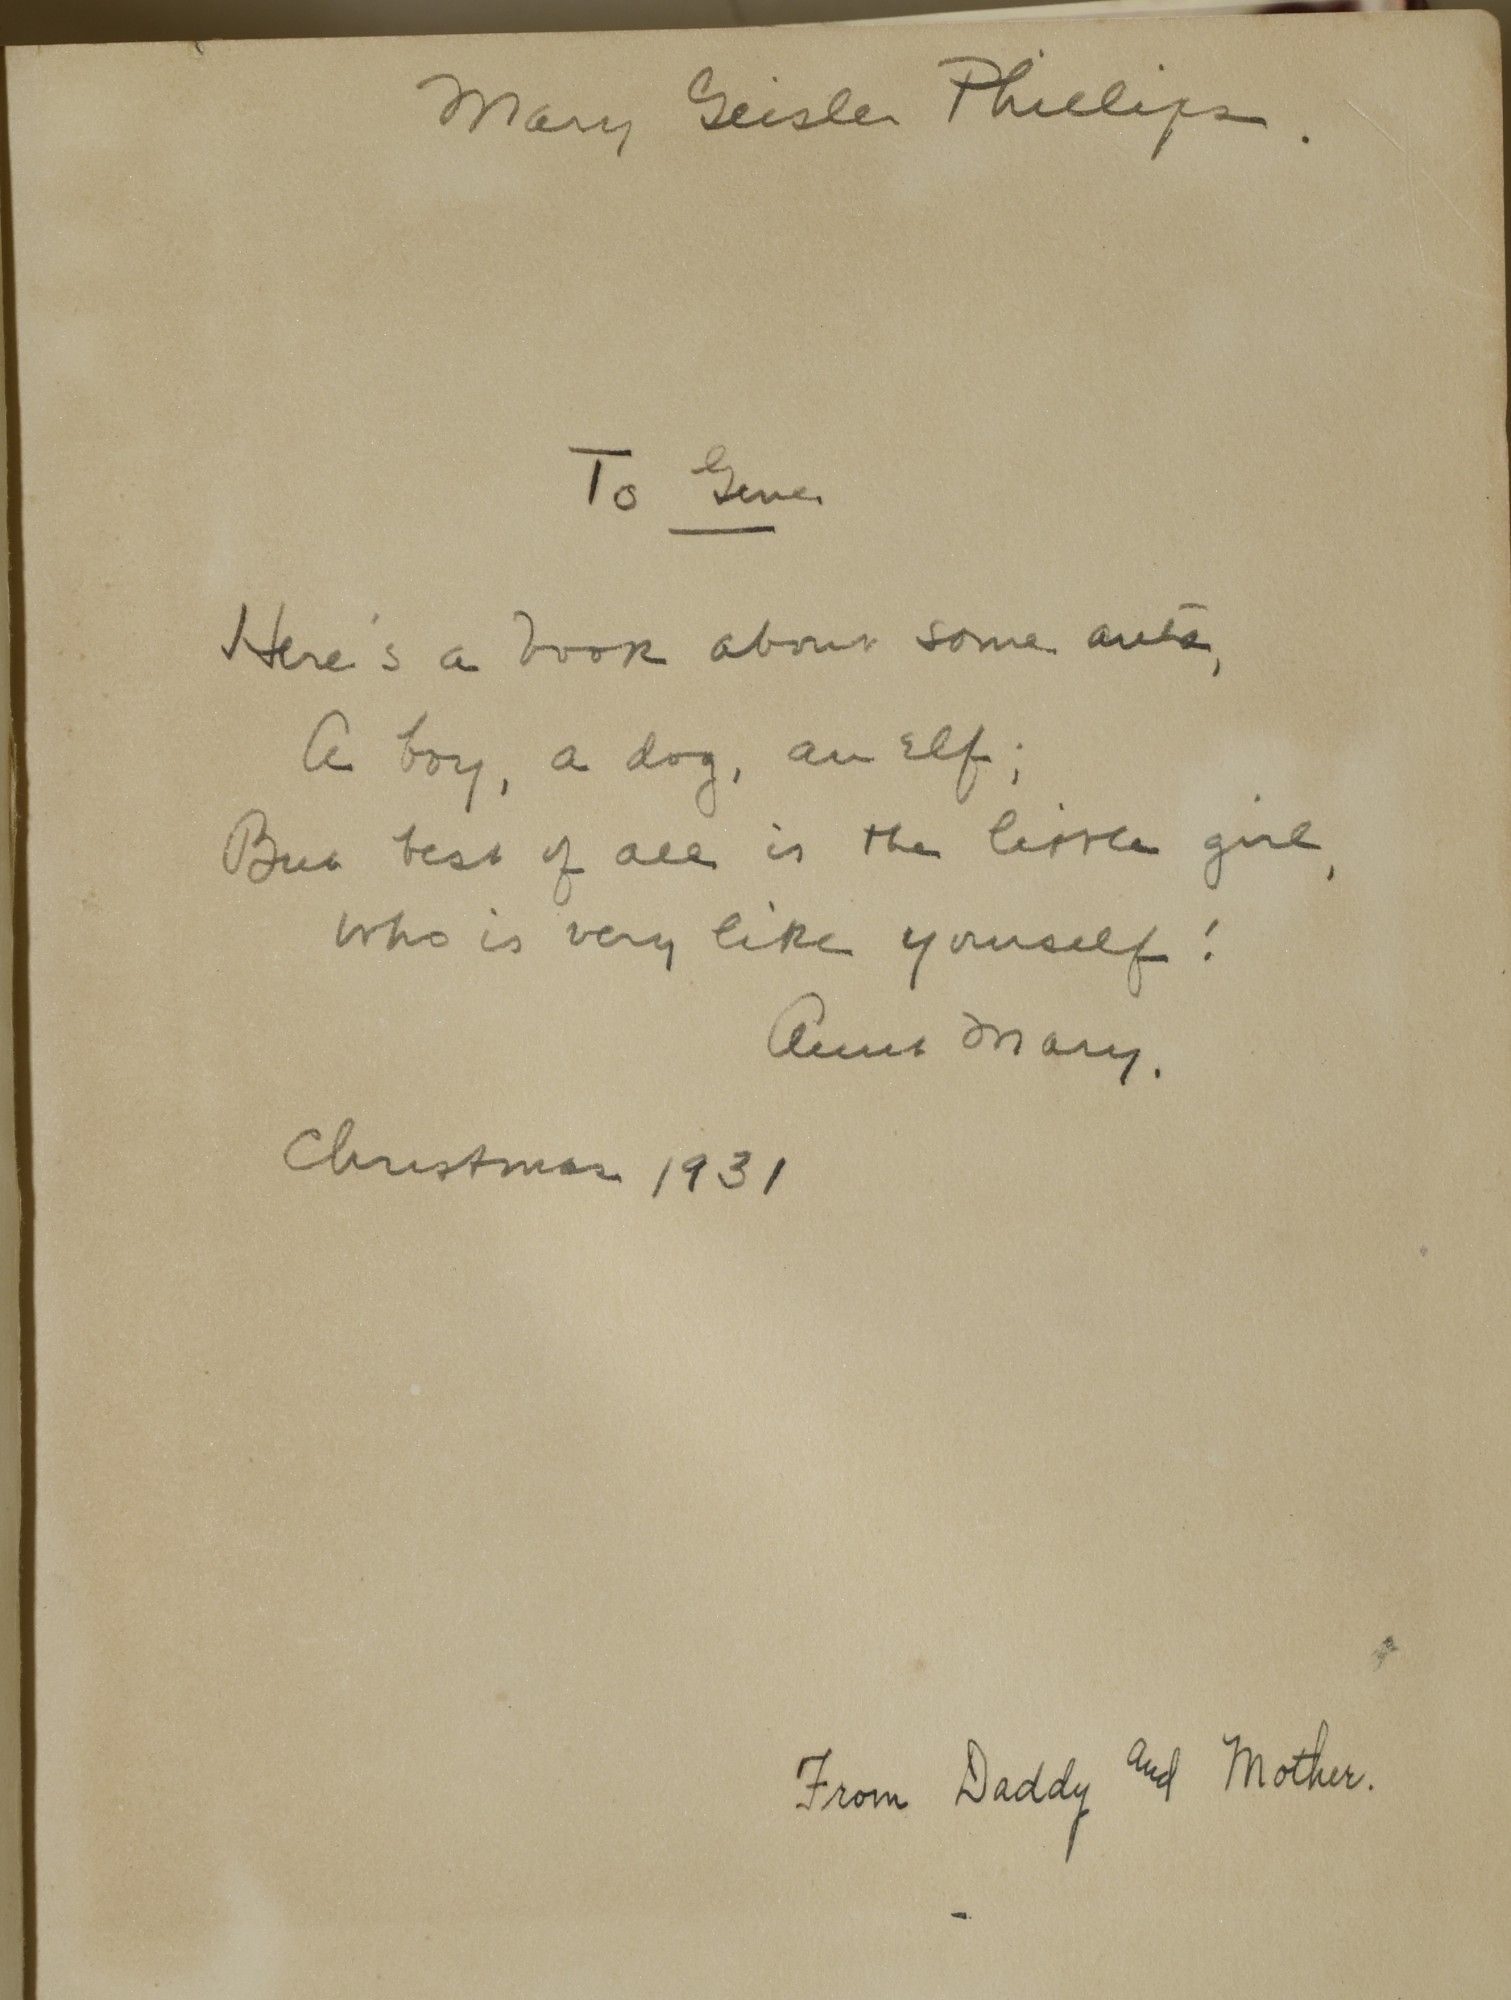 Mary Geisler Phillips.
To Gene
Here's a book about some ants,
A boy, a dog, an elf;
But best of all is the little girl,
Who is very like yourself!
Aunt Mary.
Christmas 1931
From Daddy and Mother.